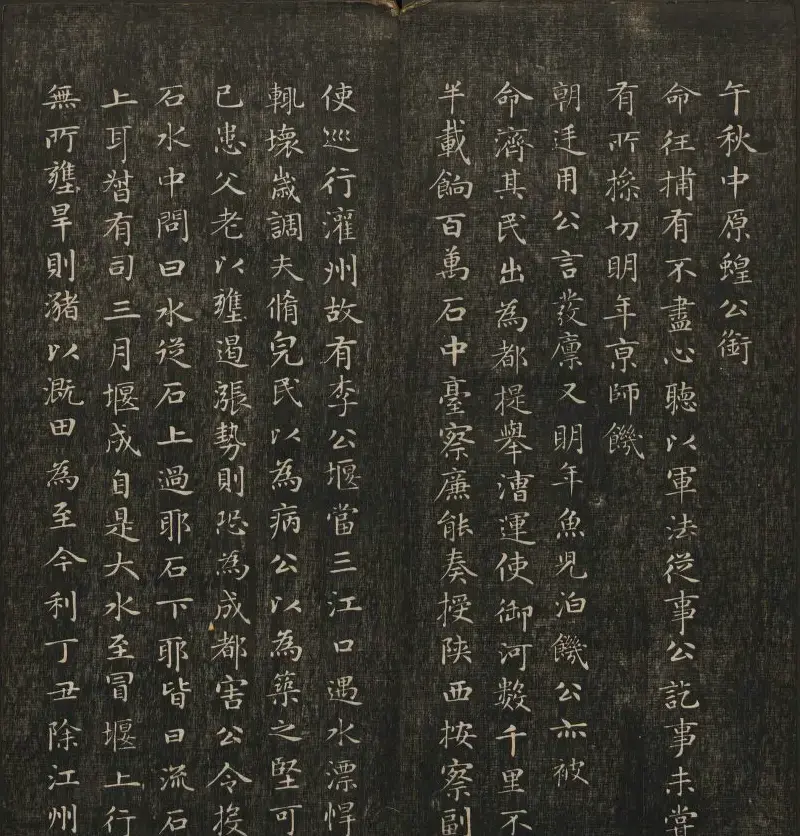 午秋中原蝗公銜
命往捕有不盡心聽以軍法從事公訖事未甞
有所操切明年京師饑
朝廷用公言發廪又明年魚兒泊饑公亦被
命濟其民出為都提舉漕運使御河數千里不
半載餉百萬石中臺察廉能奏授陝西按察副
使巡行灌州故有李公堰當三江口遇水漂悍
輒壞嵗調夫脩完民以為病公以為築之堅可
已患父老以壅遏漲勢則恐為成都害公令投
石水中問曰水從石上過耶石下耶皆曰流石
上耳督有司三月堰成自是大水至冒堰上行
無所壅旱則瀦以溉田為至今利丁丑除江州